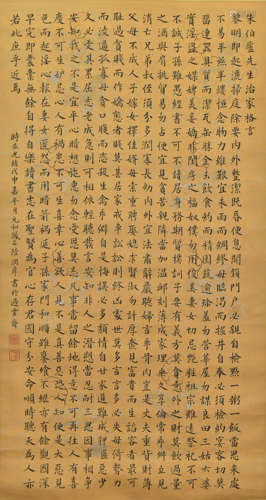 朱伯廬先生治家格言
黎明即起灑掃庭除要內外整潔既昏便息關鎖門戶必親自檢點一粥一飯當思來處
不易半絲半縷恆念物力維艱宜未雨而綢繆毋臨渴而掘井自奉必須儉約宴客切莫
留連器具質而潔瓦缶勝金玉飲食約而精園蔬愈珍饈勿營華屋勿謀良田三姑六婆
實淫盜之媒婢美妾嬌非閨房之福奴僕勿用俊美妻女切忌艷妝祖宗雖遠祭祀不可
不誠子孫雖愚經書不可不讀居身務期質樸訓子要有義方莫貪意外之財莫飲過量
之酒與肩挑貿易勿占便宜見貧苦親鄰當加溫卹刻薄成家理無久享倫常乖舛立見
消亡兄弟叔姪須分多潤寡長幼內外宜法肅辭嚴聽婦言乖骨肉豈是丈夫重貲財薄
父母不成人子嫁女擇佳婿毋索重聘娶媳求淑女勿計厚奩見富貴而生諂容者最可
恥遇貧賤而作驕態者賤莫甚居家戒爭訟訟則終凶處世莫多言言多必失毋恃勢力
而凌逼孤寡毋貪口腹而恣殺生禽乖僻自是悔誤必多頹惰自甘家道難成狎暱惡少
久必受其累屈志老成急則可相依輕聽發言安知非人之譖愬當忍耐三思因事相爭
焉知非我之不是宜平心暗想施惠勿念受恩莫忘凡事當留餘地得意不可再往人有喜
慶不可生妬忌心人有禍患不可生喜幸心善欲人見不是真善惡恐人知便是大惡見
色而起淫心報在妻女匿怨而用暗箭禍延子孫家門和順雖饔飧不繼亦有餘歡國課
早完即囊橐無餘自得至樂讀書志在聖賢為官心存君國守分安命順時聽天為人
若此庶乎近焉
時在光緒戊申嘉平月 陸潤庠書